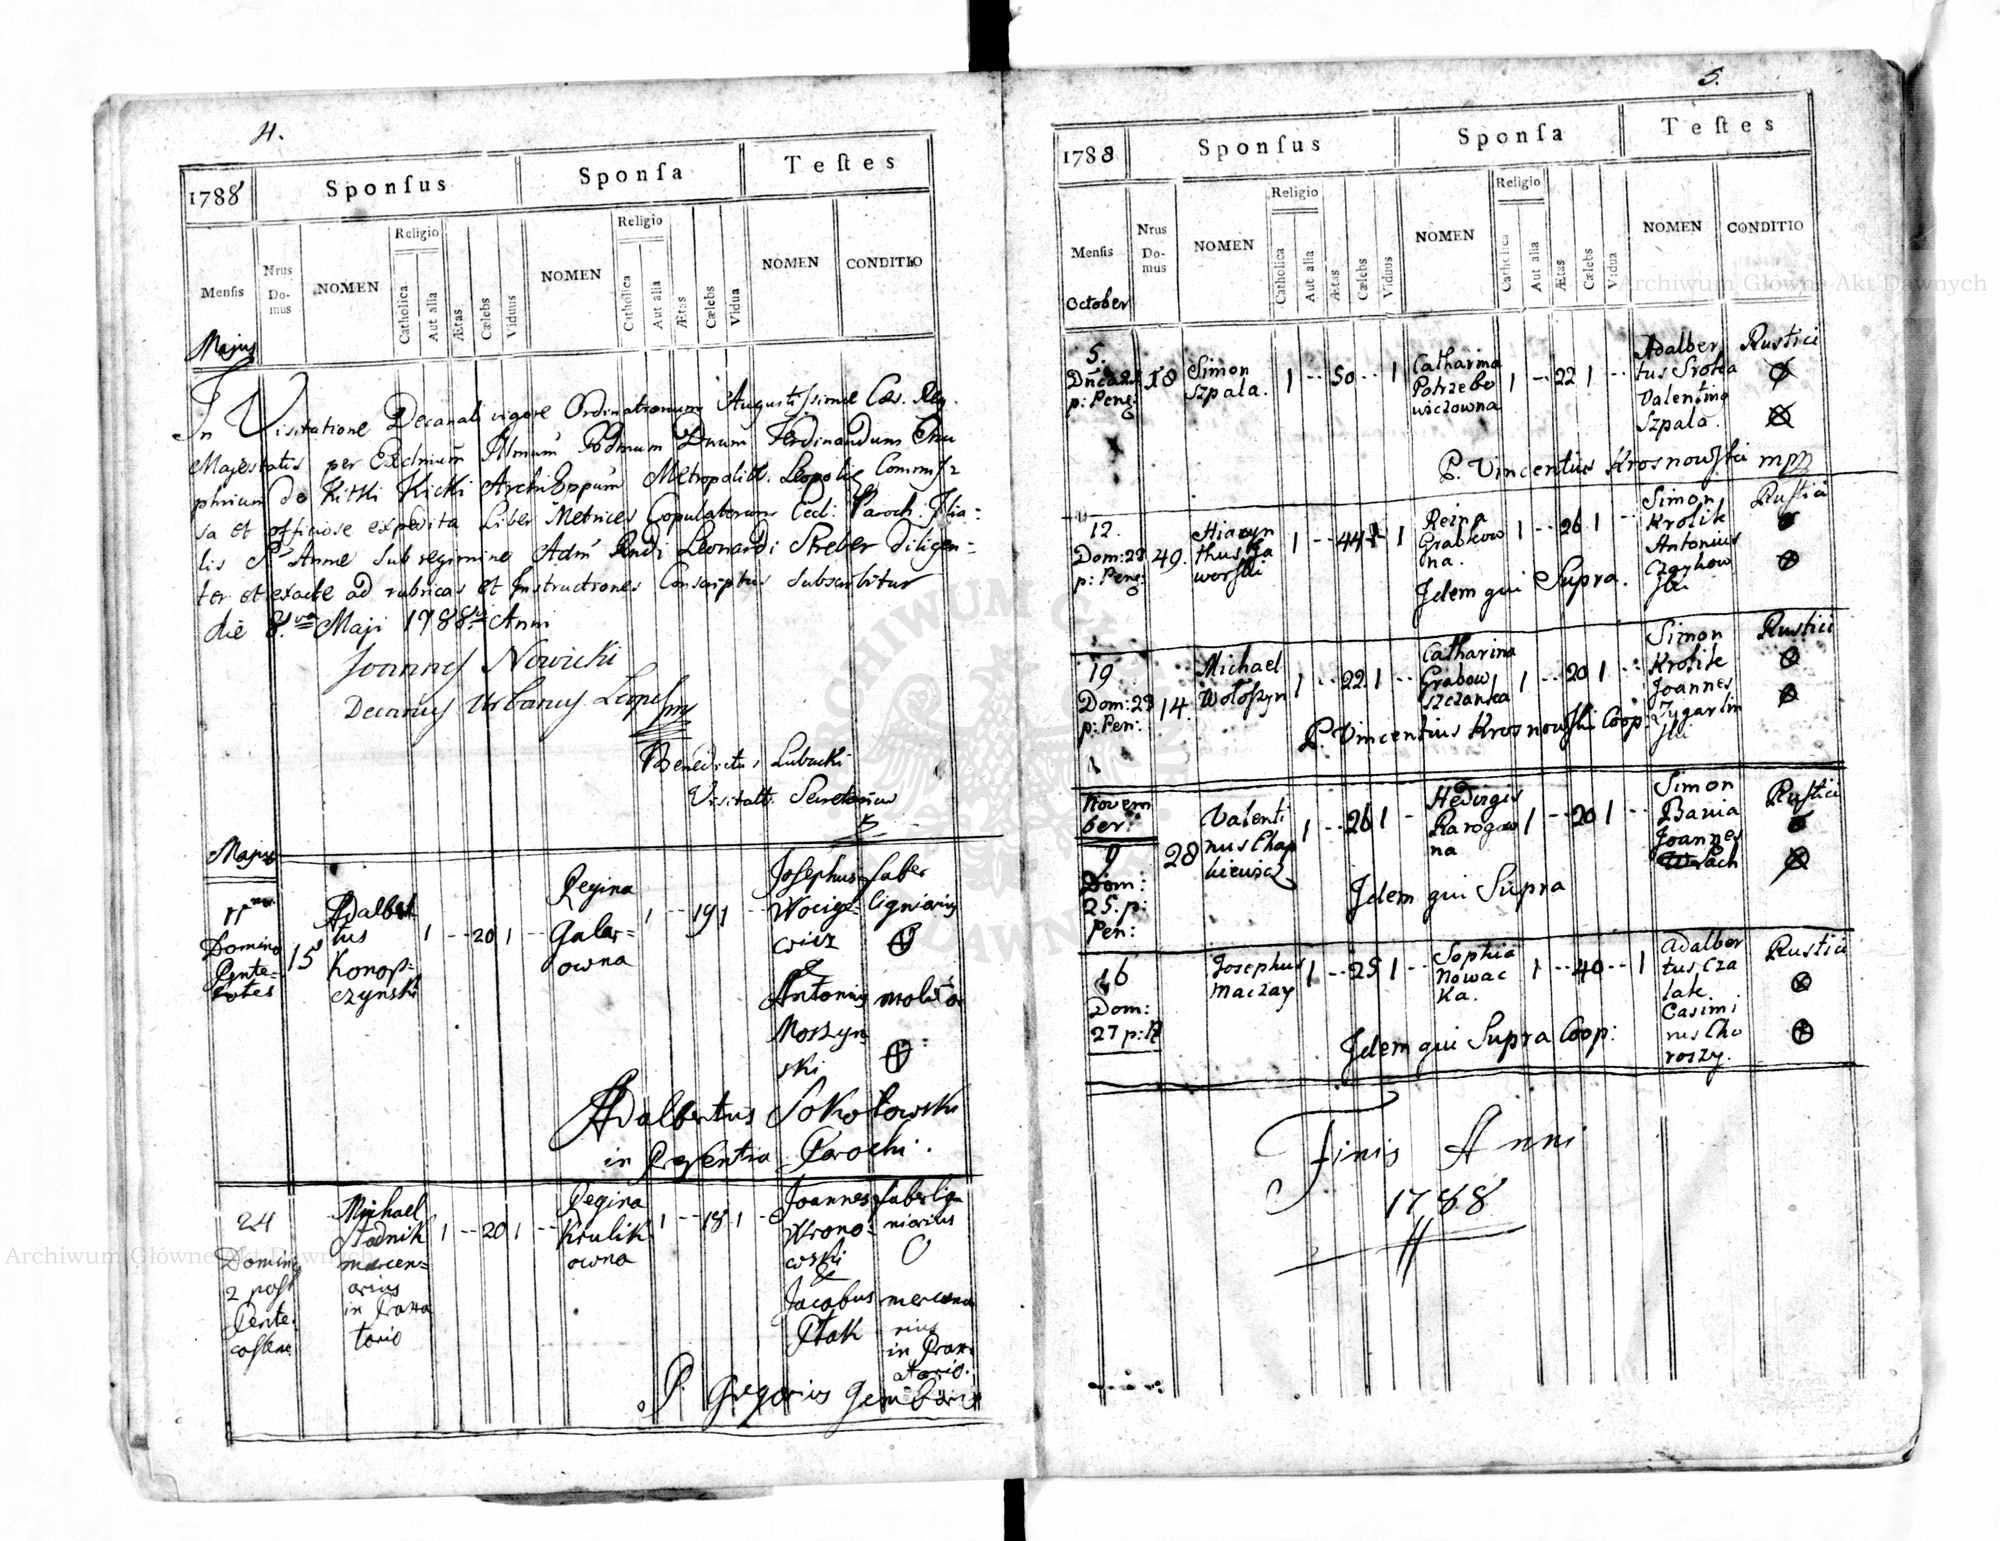 4.
1788
Sponſus
Sponſa
Teſtes
Menſis
Nrus
Do-
mus
NOMEN
Religio
Catholica
Aut alia
Ætas
Cælebs
Viduus
NOMEN
Religio
Catholica
Aut alia
Ætas
Cælebs
Vidua
NOMEN
CONDITIO
Majus
In Visitatione Decanali vigore Ordinationum Augustissimæ Cæs. Reg.
Majestatis per Ferdinandum
de Kitki Kicki Metropolit. Leopol
sa et officiose expedita Liber Metrices Copulatorum Eccl: Paroch. Filia=
lis S. Annæ sub regimine Adm Rndi Leonardi Streber diligen=
ter et exacte ad rubricas et Instructiones Conscriptus Subscribitur
die 8va Maji 1788vi Anni
Joannes Nowicki
Decanus Urbanus Leopol mp
Benedictus Lubucki
Visitatt. Secretarius
Majus
11
Domino
Pente=
costes
15
Adalber
tus
Konop=
czynski
1 -- 20 1 --
Regina
Galar=
owna
1 -- 19 1 --
Josephus
Wocige=
wicz
&
Antonius
Moszyn
ski
faber
ligniarius
molitor
Adalbertus Sokołowski
in Presentia Parochi.
24
Domin
2 post
Pente
costem
Michael
Stadnik
mercen=
arius
in Prava
torio
1 -- 20 1 --
Regina
Krulik
owna
1 -- 18 1 -
Joannes
Wrono=
wski
&
Jacobus
Ptak
faber lig
niarius
mercena
rius
in Prav
atorio.
P. Gregorius
5.
1788
Sponſus
Sponſa
Teſtes
Menſis
Nrus
Do-
mus
NOMEN
Religio
Catholica
Aut alia
Ætas
Cælebs
Viduus
NOMEN
Religio
Catholica
Aut alia
Ætas
Cælebs
Vidua
NOMEN
CONDITIO
October
5.
p: Pent
18
Simon
Szpala.
1 -- 50 -- 1
Catharina
Potrzebo
wiczowna
1 -- 22 1 --
Adalber
tus Sroka
Valentinus
Szpala.
Rustici
P. Vincentius Krosnowski mpp
12.
Dom: 22
p: Pent:
49.
Hiacyn
thus Ga
worski
1 -- 44 1
Reina
Grabkow
na.
1 -- 26 1 --
Simon
Krolik
Antonius
Czaykow
ski
Rustici
Idem qui Supra.
19
Dom: 23
p: Pen:
14.
Michael
Wołoszyn
1 -- 22 1 --
Catharina
Grabow
szczanka
1 -- 20 1 --
Simon
Krolik
Joannes
Zygarlin
ski
Rustici
P. Vincentius Krosnowski Coop:
Novem
ber:
9
Dom:
25. p:
Pen:
28
Valenti
nus Chap
kiewicz
1 -- 26 1 -
Hedvigis
Karogow
na
1 -- 20 1 --
Simon
Bania
Joannes
Rustici
Idem qui Supra
16
Dom:
27 p: P
Josephus
Maczay
1 -- 25 1 --
Sophia
Nowac
Ka.
1 -- 40 -- 1
Adalber
tus Cza
lak.
Casimi
rus Cho
roszy.
Rustici
Idem qui Supra Coop:
Finis Anni
1788
Archiwum Główne Akt Dawnych
Archiwum Główne Akt Dawnych